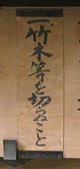 一竹木等を切らぬこと